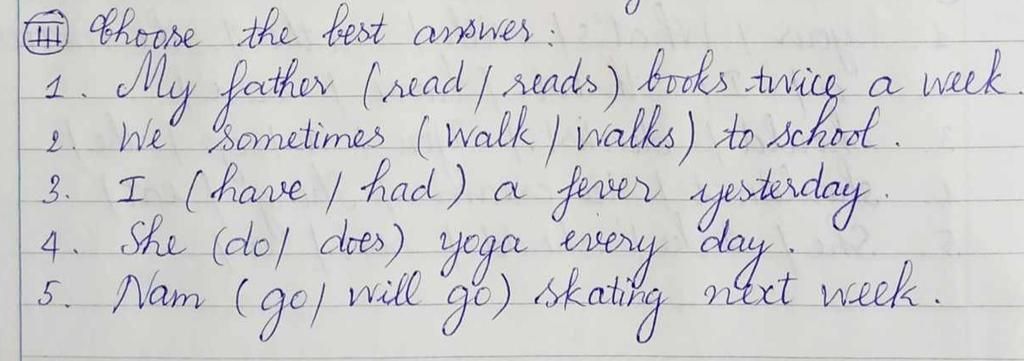 III Choose the best answer :
1. My father (read / reads) books twice a week.
2. We sometimes (walk / walks) to school.
3. I (have / had) a fever yesterday.
4. She (do/ does) yoga every day.
5. Nam (go/ will go) skating next week.